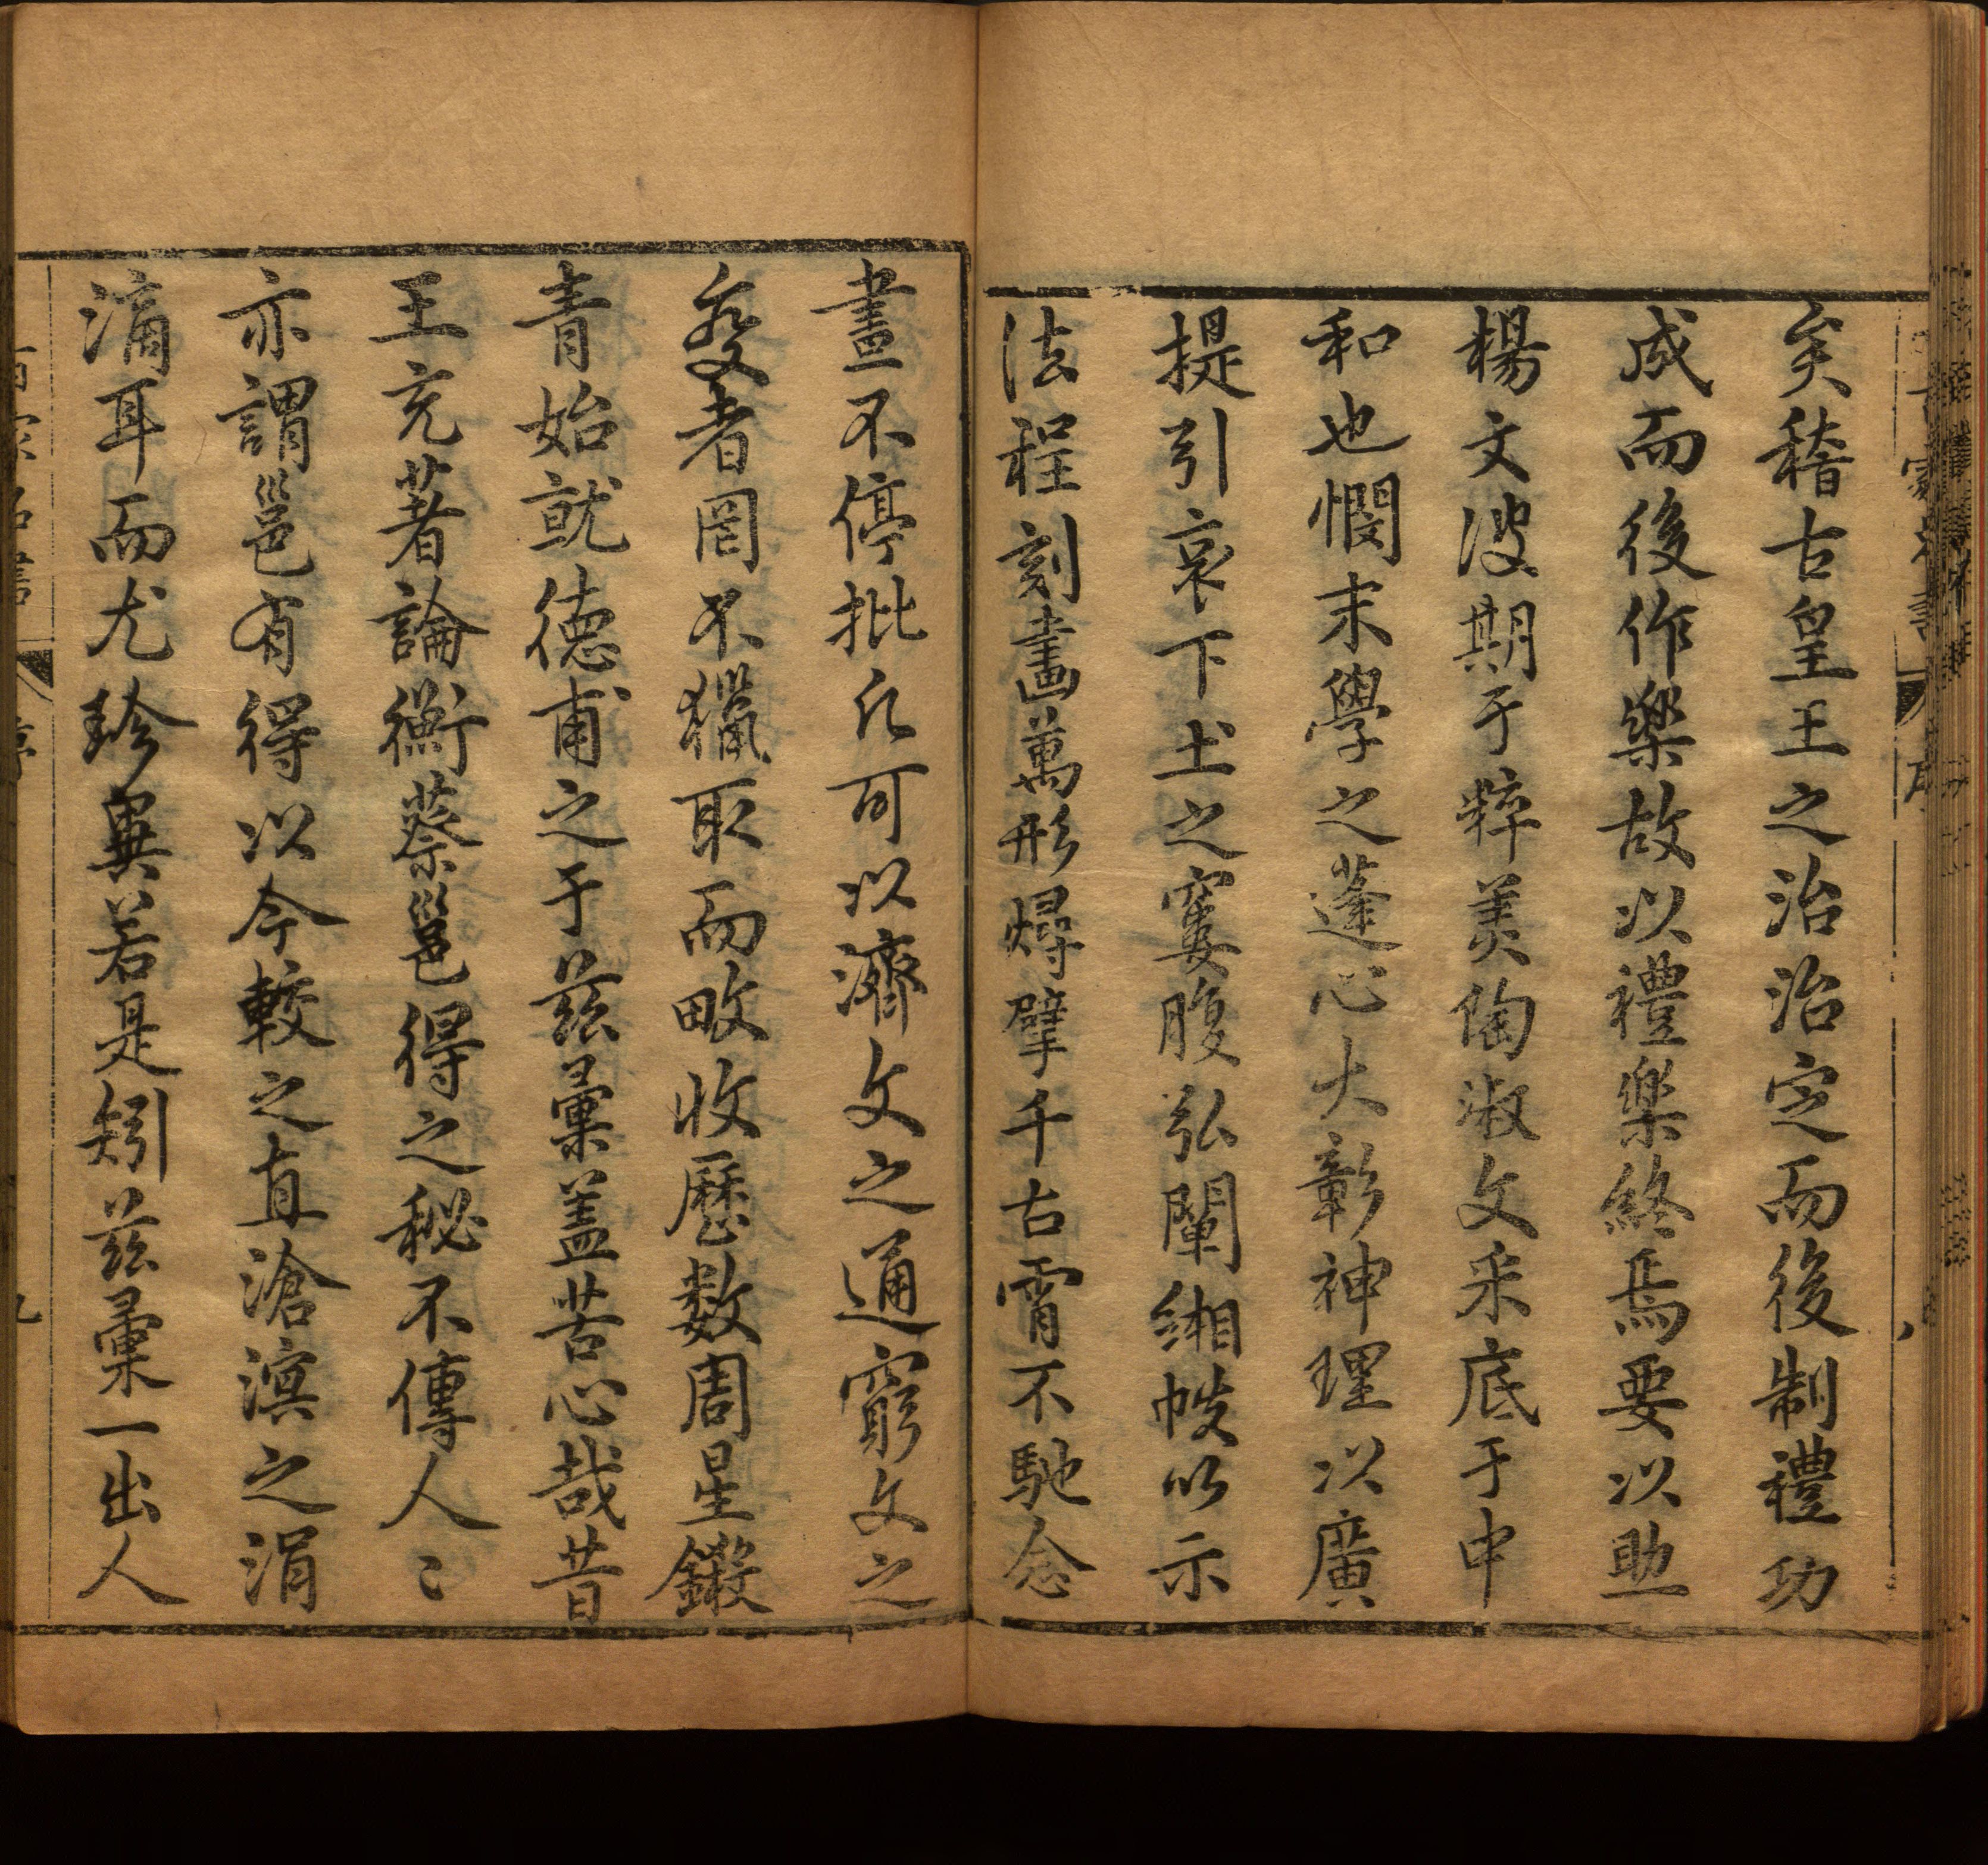 矣稽古皇王之治治定而後制禮功
成而後作樂故以禮樂終焉要以助
楊文波期于粹美陶淑文采底于中
和也憫末學之蓬心大彰神理以廣
提引哀下士之窶腹弘闡緗帙以示
法程刻畫萬形燖擘千古霄不馳念
晝不停批凡可以濟文之通窮文之
變者罔不獵取而畋收歷數周星鍛
青始就德甫之于茲彙盖苦心哉昔
王充著論衡蔡邕得之秘不傳人〻
亦謂邕有得以今較之直滄溟之涓
滴耳而尤珍異若是矧茲彙一出人